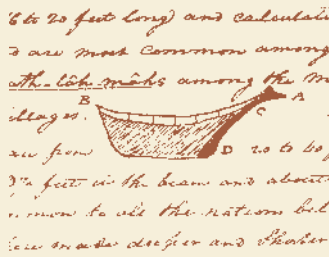 to 20 feet long) and calculat
are most common among
ath-lâh-mâhs among the
B A
C
illages.
from
D 20 to 40
feet in the beam and about
to all the nations bel
made deeper and Shorter